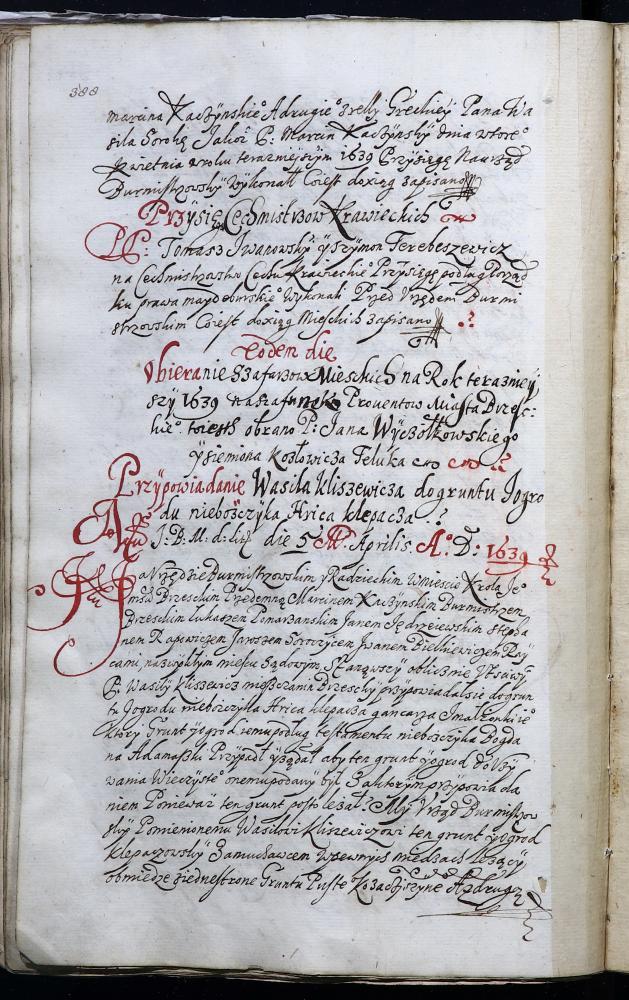 388
Marcina Kaczynskieo A drugieo z relly Greckiey Pana Wa
sila Sorokę Jakoż P: Marcin Kaczynsky dnia wtoreo
kwietnia w roku teraznieyszym 1639 Przysięgę Na urząd
Burmistrzowsky wykonał Co iest do xiąg zapisano
Przysięga Cechmistrzow Krawieckich
PP: Tomasz Iwanowsky y Szymon Terebeszewicz
na Cechmistrzowstwo Cechu Krawieckieo Przysięgę podług Porząd
ku prawa maydeburskieo wykonali Przed Urzędem Burmi
strzowskim Co iest do xiąg Mieskich zapisano
Eodem die
Obieranie Szafarzow Mieskich na Rok terazniey
szy 1639 na szafunek Prouentow Miasta Brzes-
kieo to iesth obrano P: Jana Wyczołkowskiego
y Siemiona Kozłowicza Feluka
Przypowiadanie Wasila Kliszewicza do gruntu y ogro
du nieboszczyka Hrica Klepacza
J: B: M: d: lit die 5 Aprilis Ao: D: 1639
Na Urzędzie Burmistrzowskim y Radzieckim w mieście Krola Jeo
Msci Brzeskim Przedemną Marcinem Kaczynskim Burmistrzem
Brzeskim Łukaszem Jonarzanskim Janem Jędrzeiewskim Stepha
nem Łapowiczem Jaroszem Iwanem Bielkiewiczem Ray
cami, na zwykłym mieyscu Sądowym, Stanąwszy obliczne
P: Wasily Kliszewicz mesczanin Brzesky przypowiadał sie do grun
tu y ogrodu nieboszczyka Hrica Klepacza gancarza y małzonki ieo
ktory Grunt y ogrod iemu podług testamentu nieboszczyka Bogda
na Adamaszki Przypadł y żądał aby ten grunt y ogrod do Uży
wania Wieczysteo onemu podany był Za ktorym przypowiada
niem Poniewaz ten grunt pusto lezał My Urząd Burmistrzow
sky Pomienionemu Wasilowi Kliszewiczowi ten grunt y ogrod
Klepaczowsky w pewnych miedzach lezący
obmiedze z iedne strone Gruntu Puste A z drugą